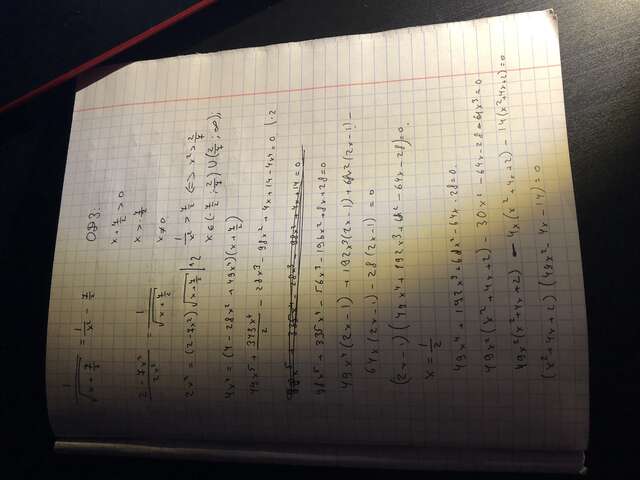 1/√(x + 7/2) = 1/x² - 7/2
ОДЗ:
x + 7/2 > 0
x > -7/2
x ≠ 0
(2 - 7x²)/2x² = 1/√(x + 7/2)
1/x² > 7/2 <=> x² > 2/7
2x² = (2 - 7x²) √(x + 7/2) |^2
x ∈ (-7/2 ; 2/7) ∪ (2/7 ; ∞);
4x⁴ = (4 - 28x² + 49x⁴)(x + 7/2)
49x⁵ + 343x⁴/2 - 28x³ - 98x² + 4x + 14 - 4x⁴ = 0 |·2
98x⁵ + 335x⁴ - 28x³ - 98x² + 4x + 14 = 0
98x⁵ + 335x⁴ - 56x³ - 196x² + 8x + 28 = 0
49x⁴(2x - 1) + 192x³(2x - 1) + 68x²(2x - 1) -
64x(2x - 1) - 28(2x - 1) = 0
(2x - 1)(49x⁴ + 192x³ + 68x² - 64x - 28) = 0
x = 1/2
49x⁴ + 192x³ + 68x² - 64x - 28 = 0
49x²(x² + 4x + 2) - 30x² - 64x - 28 - 4x³ = 0
49x²(x² + 4x + 2) - 4x(x² + 4x + 2) - 14(x² + 4x + 2) = 0
(x² + 4x + 2)(49x² - 4x - 14) = 0